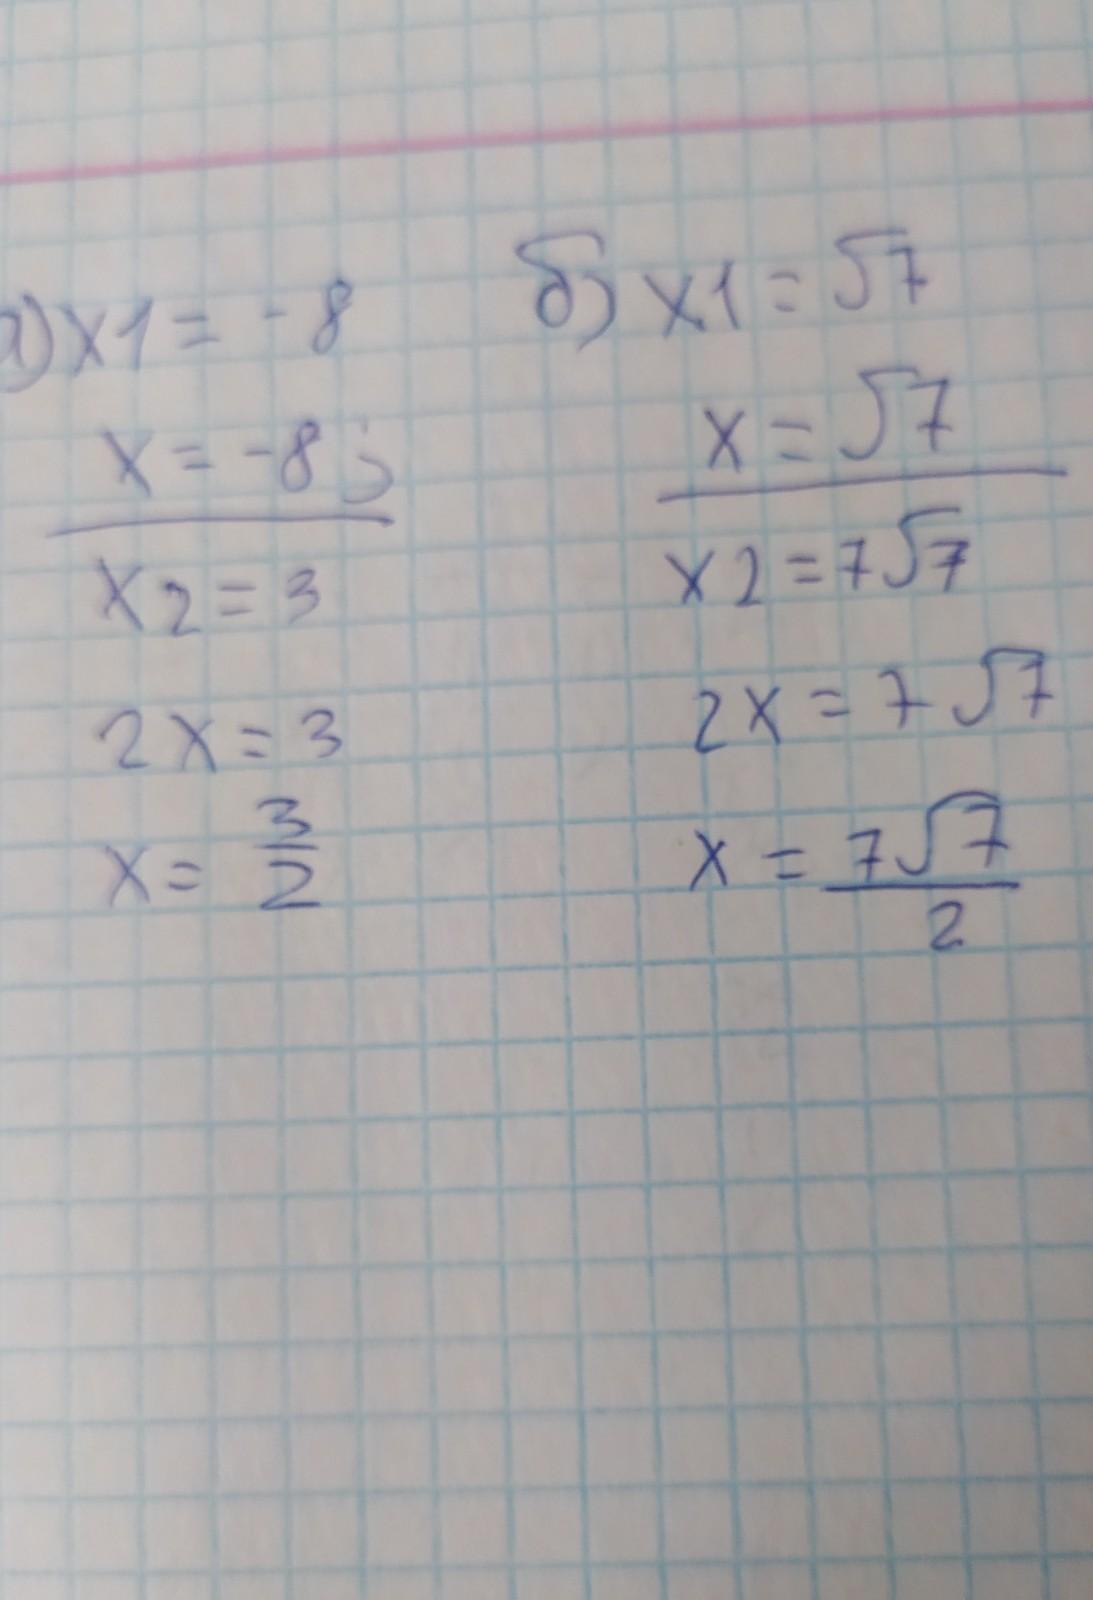 а) x1 = -8
x = -8;
x2 = 3
2x = 3
x = 3/2
б) x1 = √7
x = √7
x2 = 7√7
2x = 7√7
x = 7√7/2